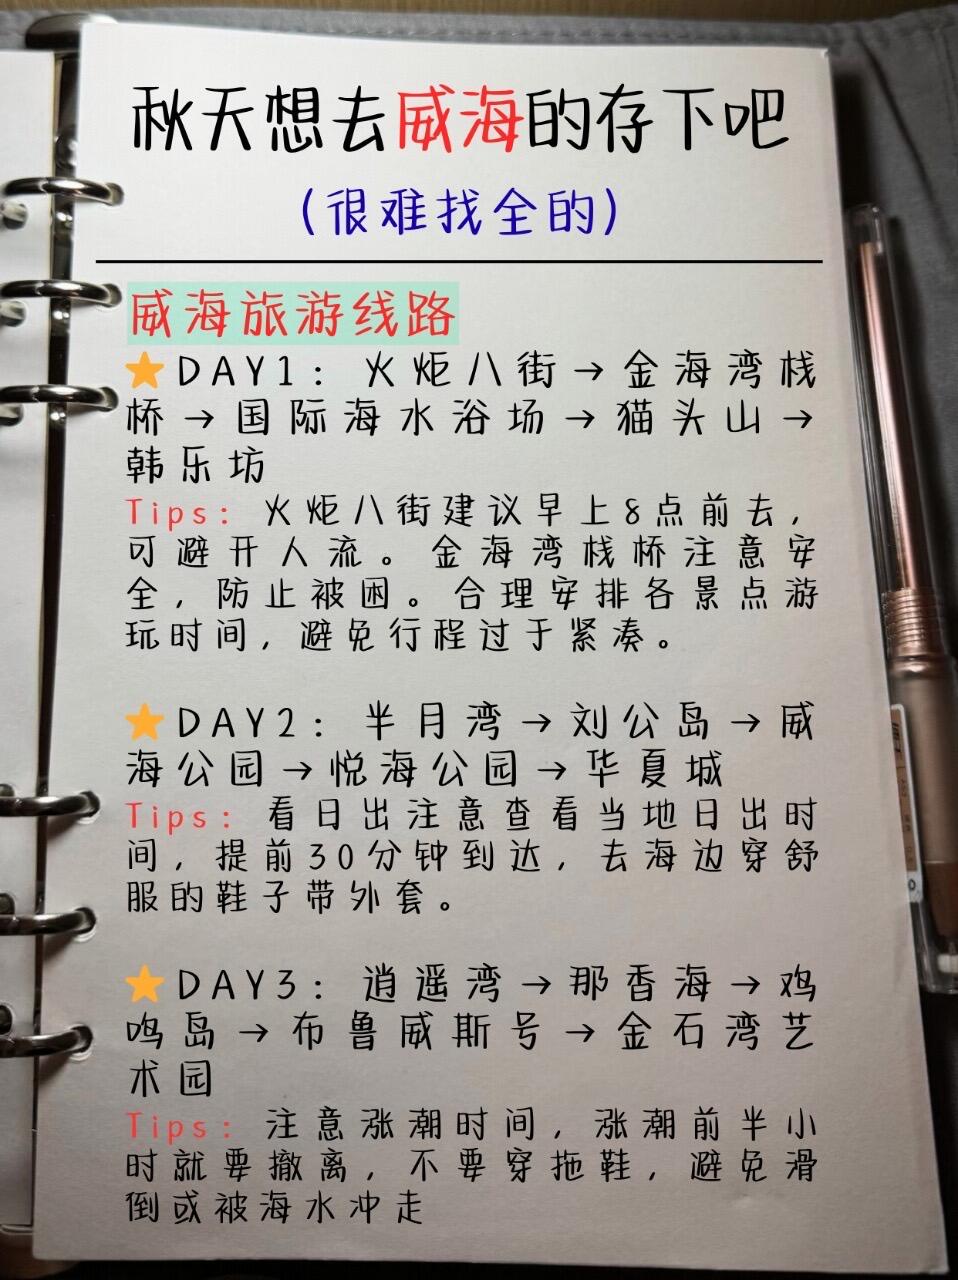 秋天想去威海的存下吧
(很难找全的)
威海旅游线路
⭐DAY1: 火炬八街→金海湾栈
桥→国际海水浴场→猫头山→
韩乐坊
Tips: 火炬八街建议早上8点前去,
可避开人流。金海湾栈桥注意安
全,防止被困。合理安排各景点游
玩时间,避免行程过于紧凑。
⭐DAY2: 半月湾→刘公岛→威
海公园→悦海公园→华夏城
Tips: 看日出注意查看当地日出时
间,提前30分钟到达,去海边穿舒
服的鞋子带外套。
⭐DAY3: 逍遥湾→那香海→鸡
鸣岛→布鲁威斯号→金石湾艺
术园
Tips: 注意涨潮时间,涨潮前半小
时就要撤离,不要穿拖鞋,避免滑
倒或被海水冲走